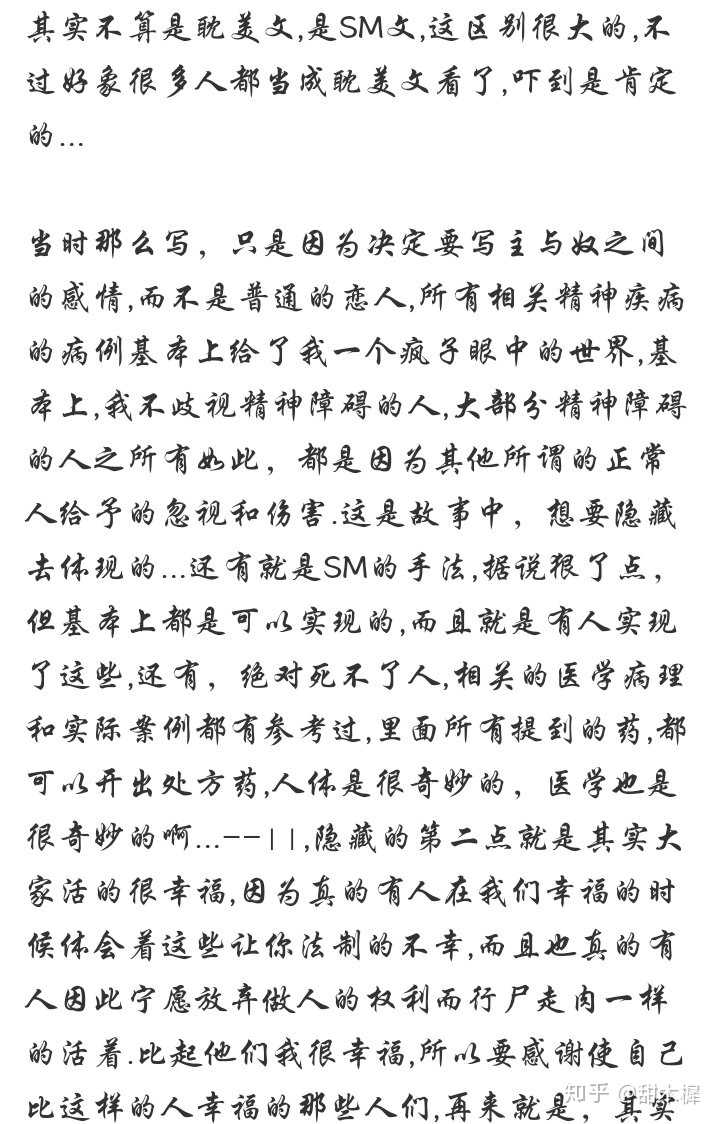 其实不算是耽美文,是SM文,这区别很大的,不
过好象很多人都当成耽美文看了,吓到是肯定
的...
当时那么写，只是因为决定要写主与奴之间
的感情,而不是普通的恋人,所有相关精神疾病
的病例基本上给了我一个疯子眼中的世界,基
本上,我不歧视精神障碍的人,大部分精神障碍
的人之所有如此，都是因为其他所谓的正常
人给予的忽视和伤害.这是故事中，想要隐藏
去体现的...还有就是SM的手法,据说狠了点，
但基本上都是可以实现的,而且就是有人实现
了这些,还有，绝对死不了人,相关的医学病理
和实际案例都有参考过,里面所有提到的药,都
可以开出处方药,人体是很奇妙的，医学也是
很奇妙的啊...--||,隐藏的第二点就是其实大
家活的很幸福,因为真的有人在我们幸福的时
候体会着这些让你法制的不幸,而且也真的有
人因此宁愿放弃做人的权利而行尸走肉一样
的活着.比起他们我很幸福,所以要感谢使自己
比这样的人幸福的那些人们,再来就是，其实
知乎 @甜木樨